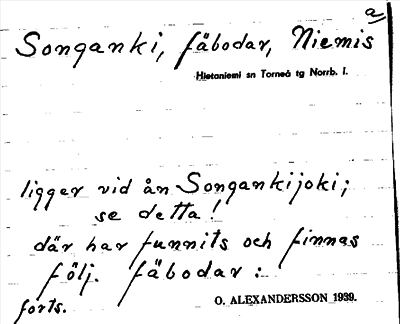 a
Songanki, fäbodar, Niemis
Hietaniemi sn Torneå tg Norrb. l.
ligger vid ån Songankijoki;
se detta!
där har funnits och finnas
följ. fäbodar:
forts.
O. ALEXANDERSSON 1939.